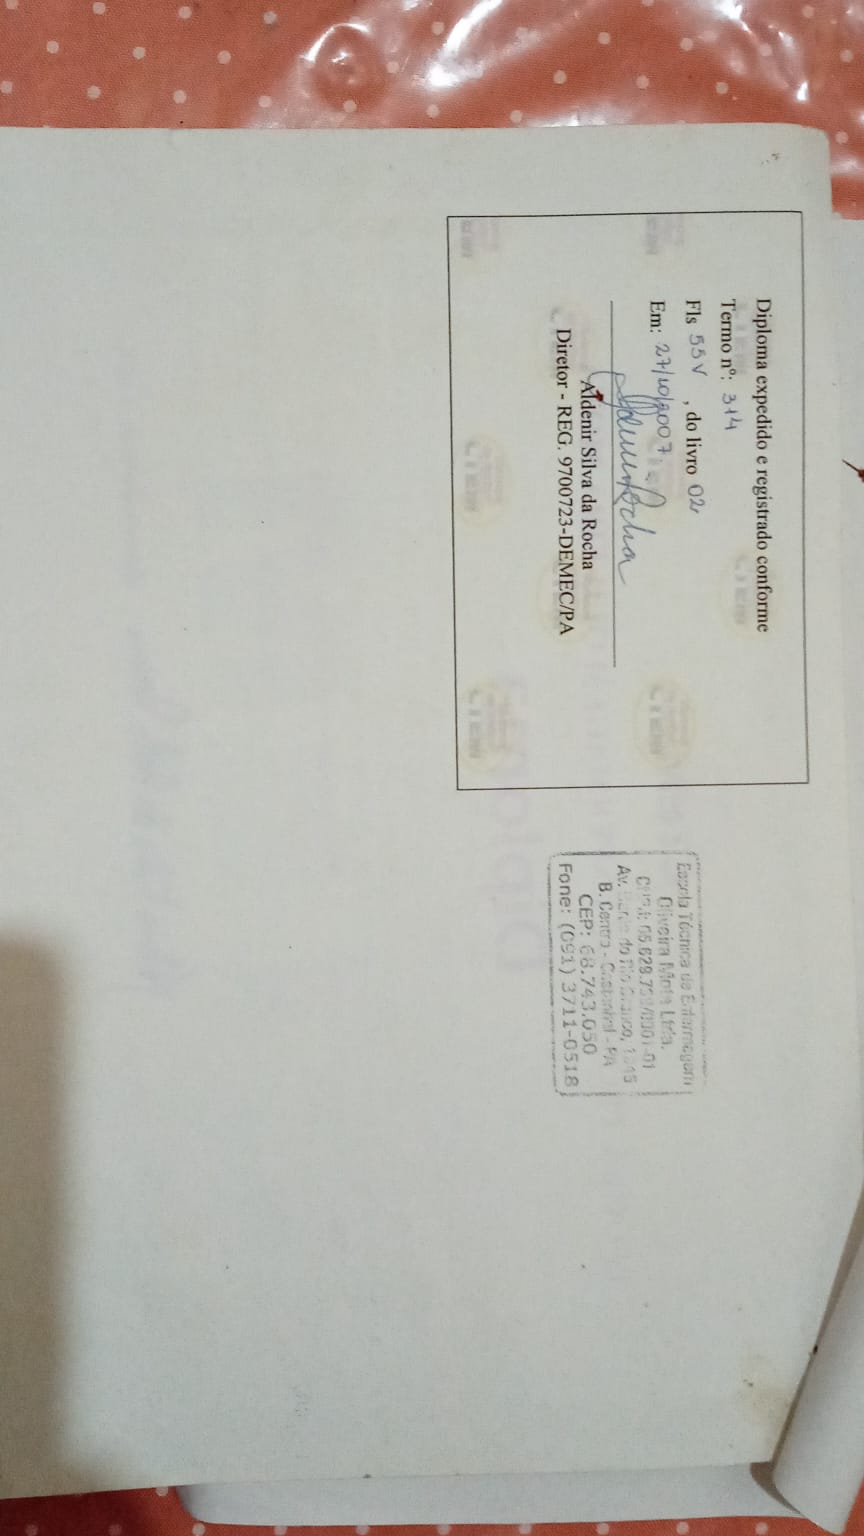 Diploma expedido e registrado conforme
Termo nº: 314
Fls 55V , do livro 02
Em: 27/10/2007
Aldenir Silva da Rocha
Diretor - REG. 9700723-DEMEC/PA
Escola Técnica de Enfermagem
Oliveira Mota Ltda.
Av. do Rio Branco,
B. Centro - Castanhal - PA
CEP: 68.743.050
Fone: (091) 3711-0518